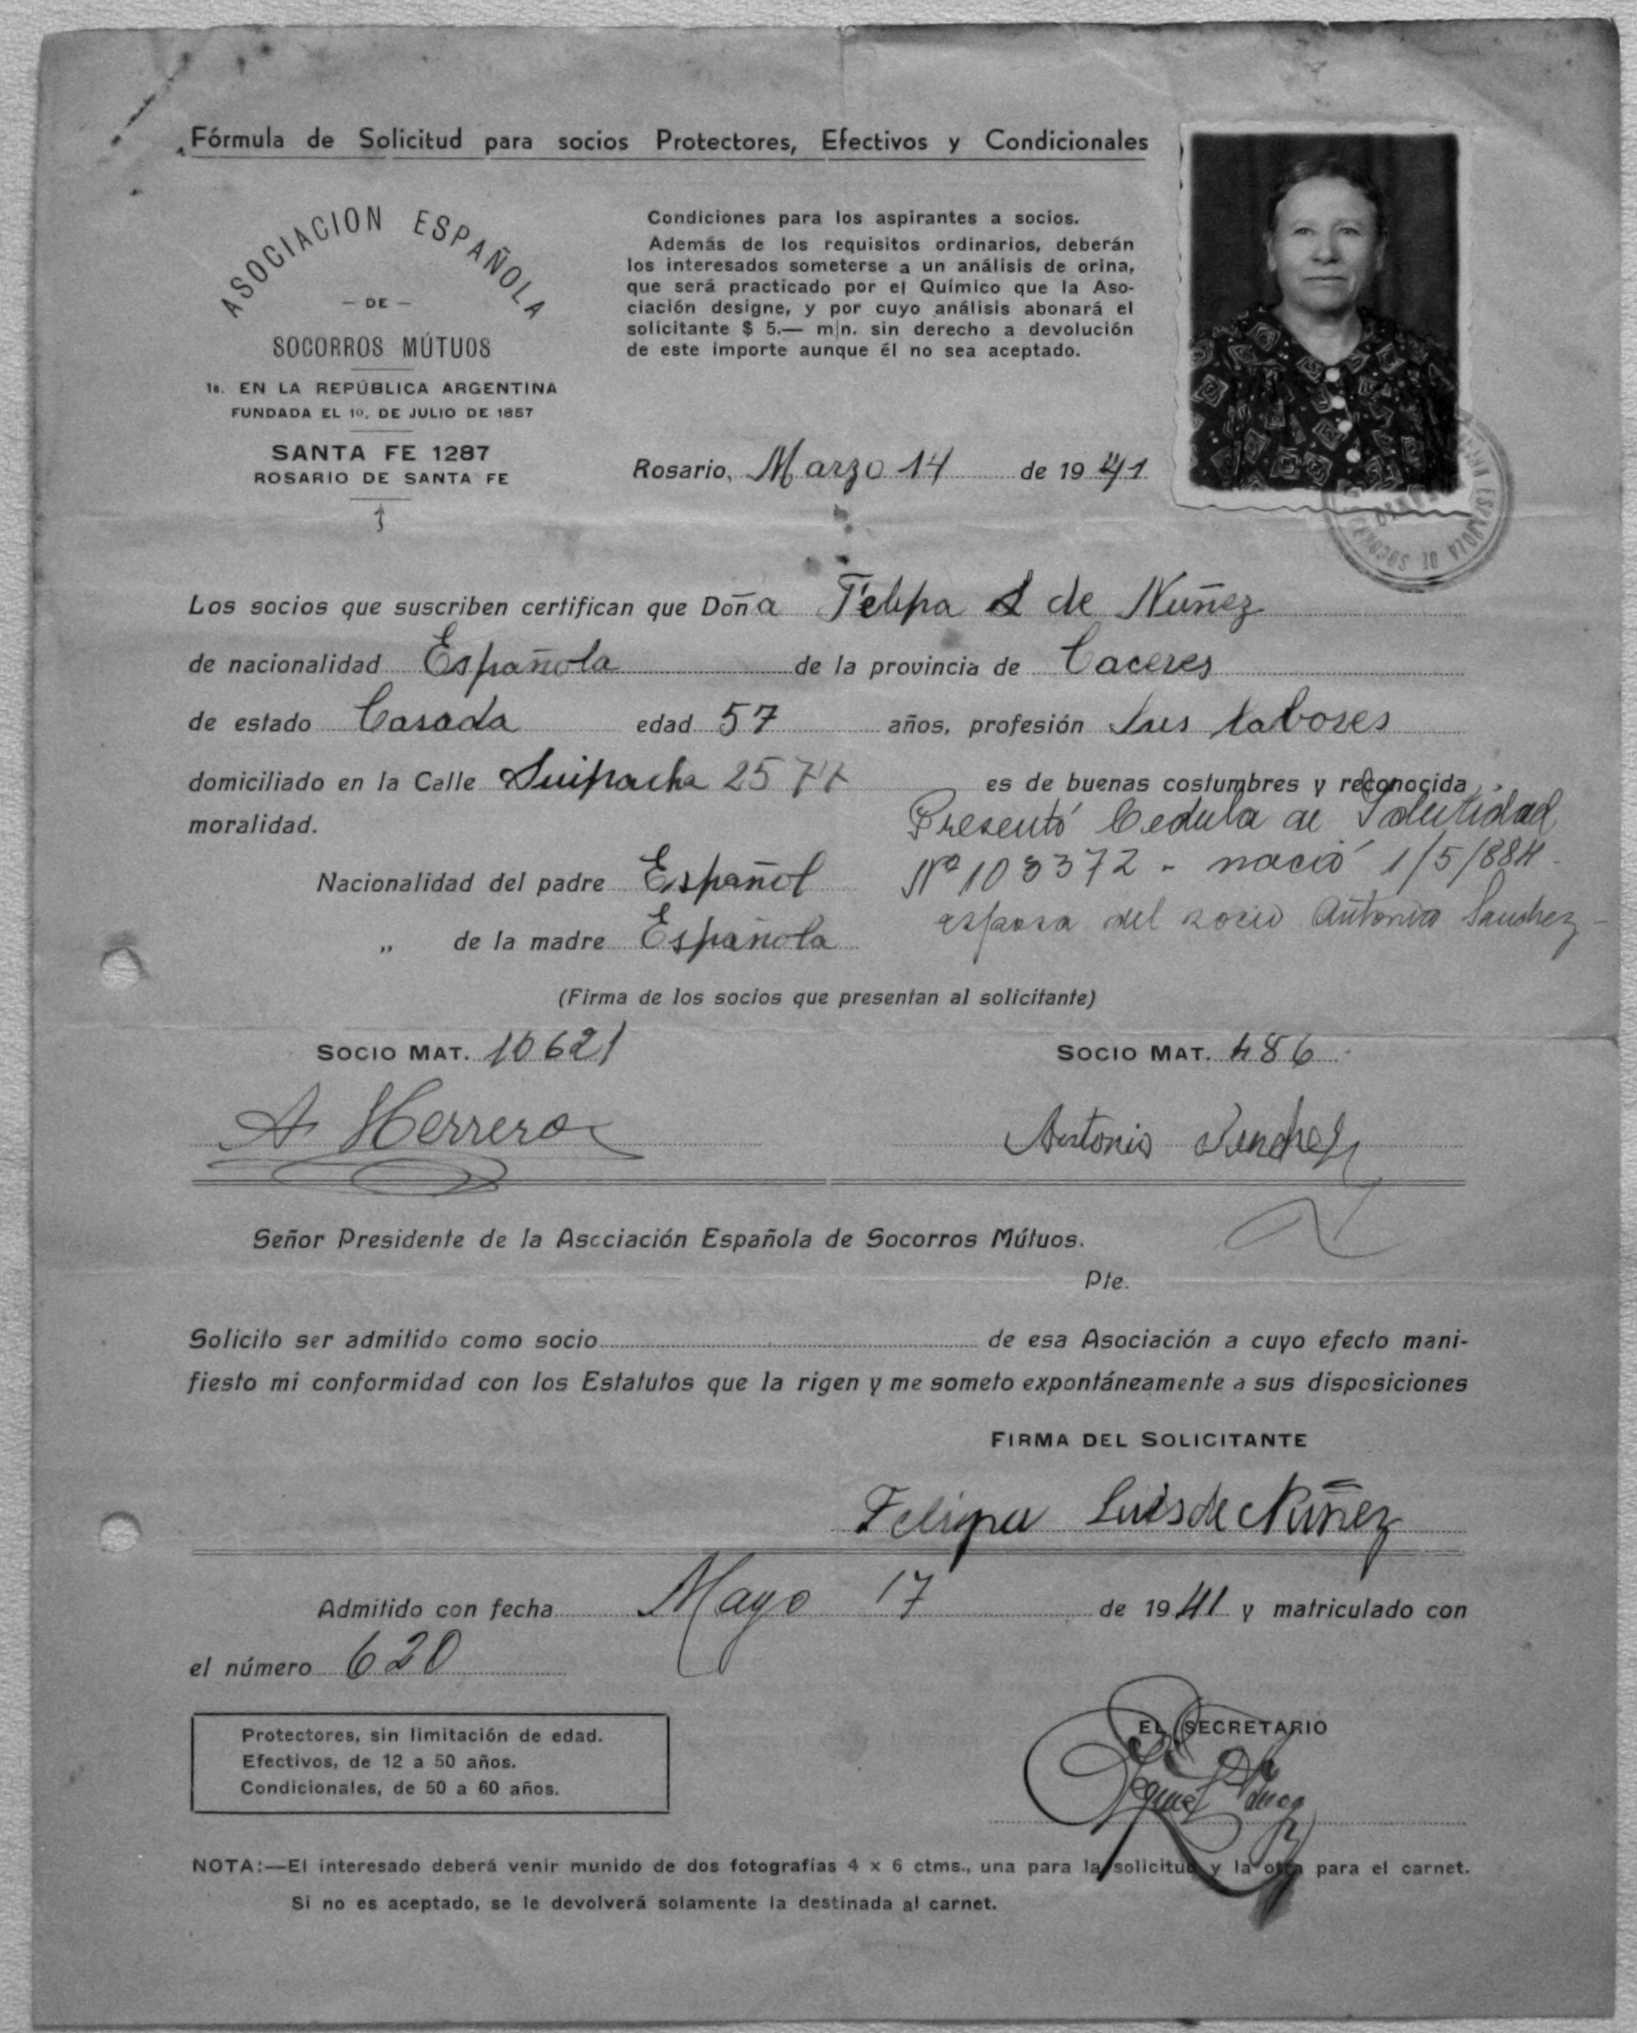 Fórmula de Solicitud para socios Protectores, Efectivos y Condicionales
ASOCIACION ESPAÑOLA
— DE —
SOCORROS MÚTUOS
1a. EN LA REPÚBLICA ARGENTINA
FUNDADA EL 10. DE JULIO DE 1857
SANTA FE 1287
ROSARIO DE SANTA FE
Condiciones para los aspirantes a socios.
Además de los requisitos ordinarios, deberán
los interesados someterse a un análisis de orina,
que será practicado por el Químico que la Aso-
ciación designe, y por cuyo análisis abonará el
solicitante $ 5.— m|n. sin derecho a devolución
de este importe aunque él no sea aceptado.
Rosario, Marzo 14 de 1941
Los socios que suscriben certifican que Doña Felipa L de Nuñez
de nacionalidad Española de la provincia de Caceres
de estado Casada edad 57 años, profesión sus labores
domiciliado en la Calle Suipacha 2577 es de buenas costumbres y reconocida
moralidad.
Presentó Cedula de Identidad
Nº 108372 - nació 1/5/884
esposa del socio Antonio Sanchez -
Nacionalidad del padre Español
„ de la madre Española
(Firma de los socios que presentan al solicitante)
SOCIO MAT. 10621
SOCIO MAT. 486
A Herrero
Antonio Sanchez
Señor Presidente de la Asociación Española de Socorros Mútuos.
Pte.
Solicito ser admitido como socio de esa Asociación a cuyo efecto mani-
fiesto mi conformidad con los Estatutos que la rigen y me someto expontáneamente a sus disposiciones
FIRMA DEL SOLICITANTE
Felipa Luis de Núñez
Admitido con fecha Mayo 17 de 1941 y matriculado con
el número 620
Protectores, sin limitación de edad.
Efectivos, de 12 a 50 años.
Condicionales, de 50 a 60 años.
EL SECRETARIO
NOTA:—El interesado deberá venir munido de dos fotografías 4 x 6 ctms., una para la solicitud y la otra para el carnet.
Si no es aceptado, se le devolverá solamente la destinada al carnet.